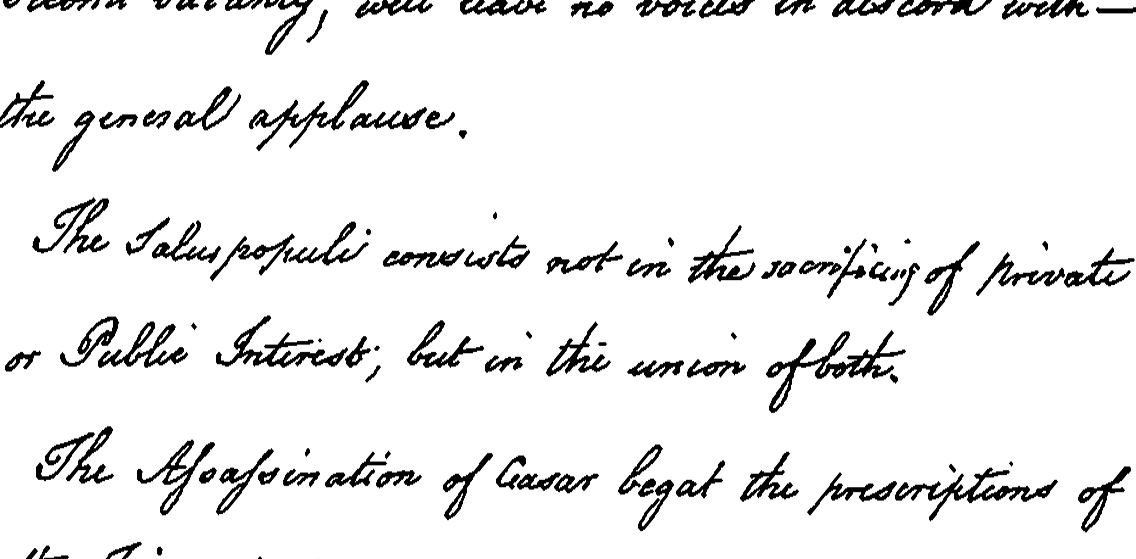 second vacancy, will leave no voices in discord with—
the general applause.
The Salus populi consists not in the sacrificing of private
or Public Interest; but in the union of both.
The Assassination of Ceasar begat the prescriptions of
the